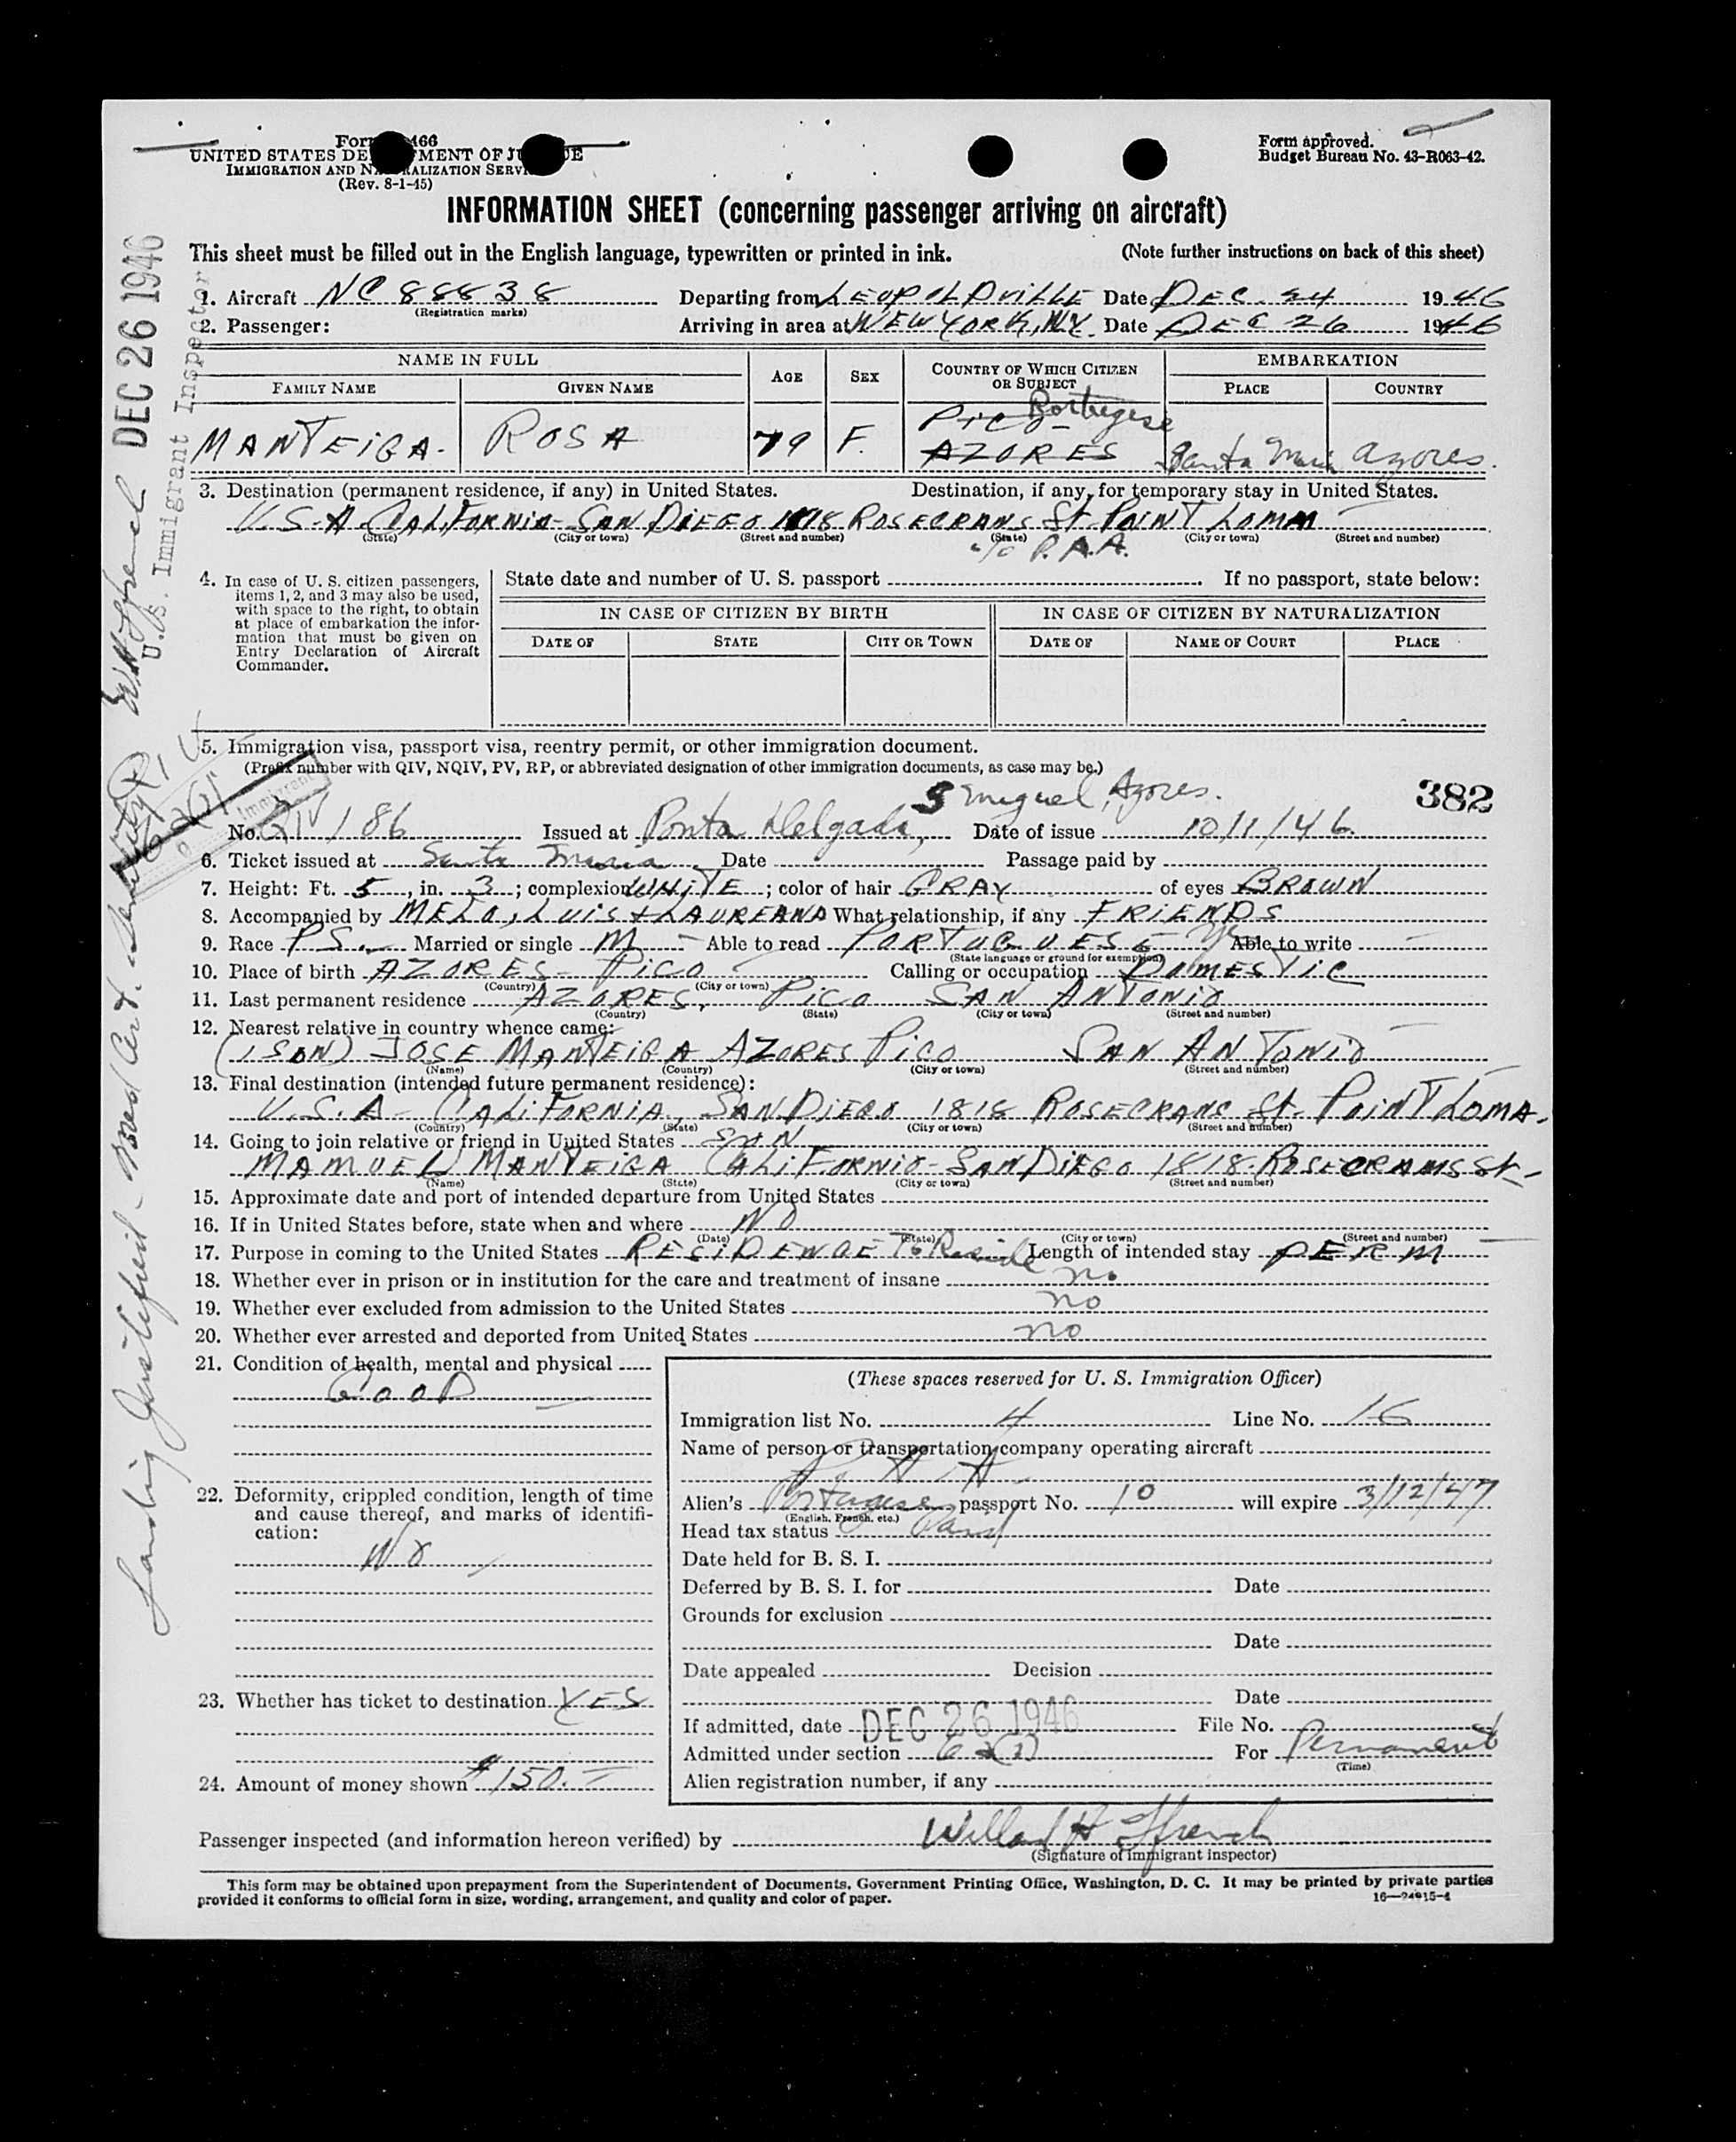 Form 466
UNITED STATES DE MENT OF JU E
IMMIGRATION AND NA ALIZATION SERVI
(Rev. 8-1-45)
Form approved.
Budget Bureau No. 43-R063-42.
INFORMATION SHEET (concerning passenger arriving on aircraft)
This sheet must be filled out in the English language, typewritten or printed in ink. (Note further instructions on back of this sheet)
1. Aircraft NC 88838 Departing from LEOPOLDVILLE Date DEC. 24 1946
(Registration marks)
2. Passenger: Arriving in area at NEW YORK, N.Y. Date DEC 26 1946
NAME IN FULL AGE SEX COUNTRY OF WHICH CITIZEN OR SUBJECT EMBARKATION
FAMILY NAME GIVEN NAME PLACE COUNTRY
Portugese
PICO
MANTEIGA. ROSA 79 F. AZORES Santa Maria Azores.
3. Destination (permanent residence, if any) in United States. Destination, if any, for temporary stay in United States.
U.S.A. CALIFORNIA - SAN DIEGO 1818 ROSECRANS St. POINT LOMA
(State) (City or town) (Street and number) (State) (City or town) (Street and number)
c/o P.A.A.
4. In case of U. S. citizen passengers, items 1, 2, and 3 may also be used, with space to the right, to obtain at place of embarkation the information that must be given on Entry Declaration of Aircraft Commander.
State date and number of U. S. passport If no passport, state below:
IN CASE OF CITIZEN BY BIRTH IN CASE OF CITIZEN BY NATURALIZATION
DATE OF STATE CITY OR TOWN DATE OF NAME OF COURT PLACE
5. Immigration visa, passport visa, reentry permit, or other immigration document.
(Prefix number with QIV, NQIV, PV, RP, or abbreviated designation of other immigration documents, as case may be.)
S Miguel, Azores. 382
No. QIV 186 Issued at Ponta Delgada, Date of issue 10/1/46
6. Ticket issued at Santa Maria Date Passage paid by
7. Height: Ft. 5, in. 3; complexion WHITE; color of hair GRAY of eyes BROWN
8. Accompanied by MELO, LUIS & LAUREANA What relationship, if any FRIENDS
9. Race PS. Married or single M Able to read PORTUGUESE Yes Able to write
(State language or ground for exemption)
10. Place of birth AZORES - PICO Calling or occupation DOMESTIC
(Country) (City or town)
11. Last permanent residence AZORES, PICO SAN ANTONIO
(Country) (State) (City or town) (Street and number)
12. Nearest relative in country whence came:
(SON) JOSE MANTEIGA AZORES PICO SAN ANTONIO
(Name) (Country) (City or town) (Street and number)
13. Final destination (intended future permanent residence):
U.S.A - CALIFORNIA, SAN DIEGO 1818 ROSECRANS St. POINT LOMA.
(Country) (State) (City or town) (Street and number)
14. Going to join relative or friend in United States SON
MAMUEL MANTEIGA CALIFORNIA - SAN DIEGO 1818 ROSECRAMS St-
(Name) (State) (City or town) (Street and number)
15. Approximate date and port of intended departure from United States
16. If in United States before, state when and where NO
(Date) (State) (City or town) (Street and number)
17. Purpose in coming to the United States RESIDENCE To Reside Length of intended stay PERM
18. Whether ever in prison or in institution for the care and treatment of insane no
19. Whether ever excluded from admission to the United States no
20. Whether ever arrested and deported from United States no
21. Condition of health, mental and physical
GOOD
22. Deformity, crippled condition, length of time and cause thereof, and marks of identification:
NO
23. Whether has ticket to destination YES
24. Amount of money shown $150.
(These spaces reserved for U. S. Immigration Officer)
Immigration list No. 4 Line No. 16
Name of person or transportation company operating aircraft
P.A.A.
Alien's Portuguese passport No. 10 will expire 3/12/47
(English, French, etc.)
Head tax status Paid
Date held for B. S. I.
Deferred by B. S. I. for Date
Grounds for exclusion
Date
Date appealed Decision
Date
If admitted, date DEC 26 1946 File No.
Admitted under section 6 a(3) For Permanent
(Time)
Alien registration number, if any
Passenger inspected (and information hereon verified) by Willard H Ffrench
(Signature of immigrant inspector)
This form may be obtained upon prepayment from the Superintendent of Documents, Government Printing Office, Washington, D. C. It may be printed by private parties
provided it conforms to official form in size, wording, arrangement, and quality and color of paper. 16—24915-4
DEC 26 1946
U.S. Immigrant Inspector
W H Ffrench